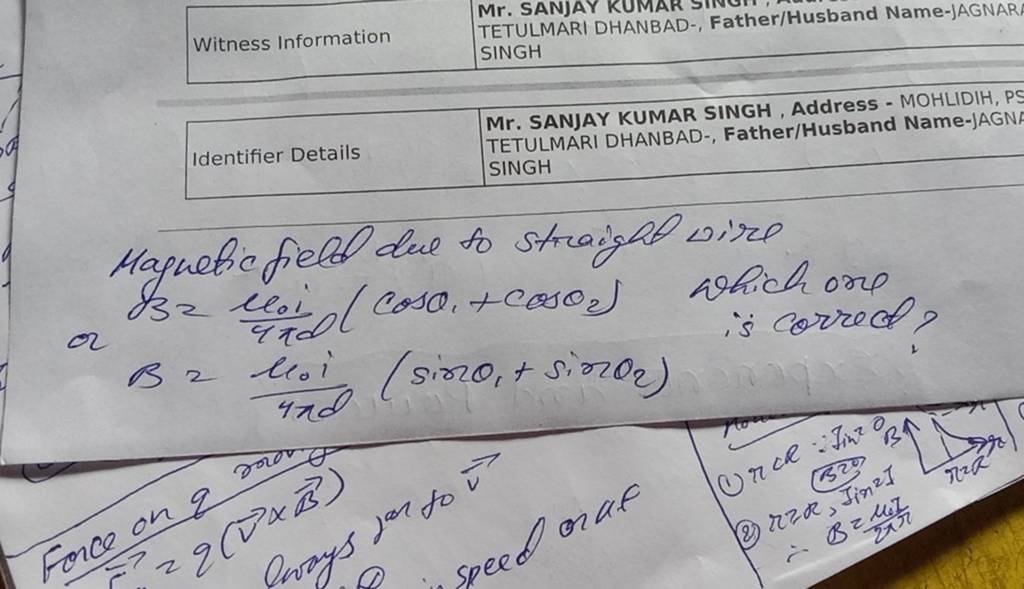 Witness Information
Mr. SANJAY KUMAR SINGH ,
TETULMARI DHANBAD-, Father/Husband Name-JAGNARA
SINGH
Identifier Details
Mr. SANJAY KUMAR SINGH , Address - MOHLIDIH, PS
TETULMARI DHANBAD-, Father/Husband Name-JAGNA
SINGH
Magnetic field due to straight wire
B = μ₀i/4πd (cosθ₁ + cosθ₂) which one
or is correct?
B = μ₀i/4πd (sinθ₁ + sinθ₂)
Force on q
= q(v⃗ × B⃗)
to v⃗
speed
① r<R
B=0
② r>R,
∴ B = μ₀I/2πr